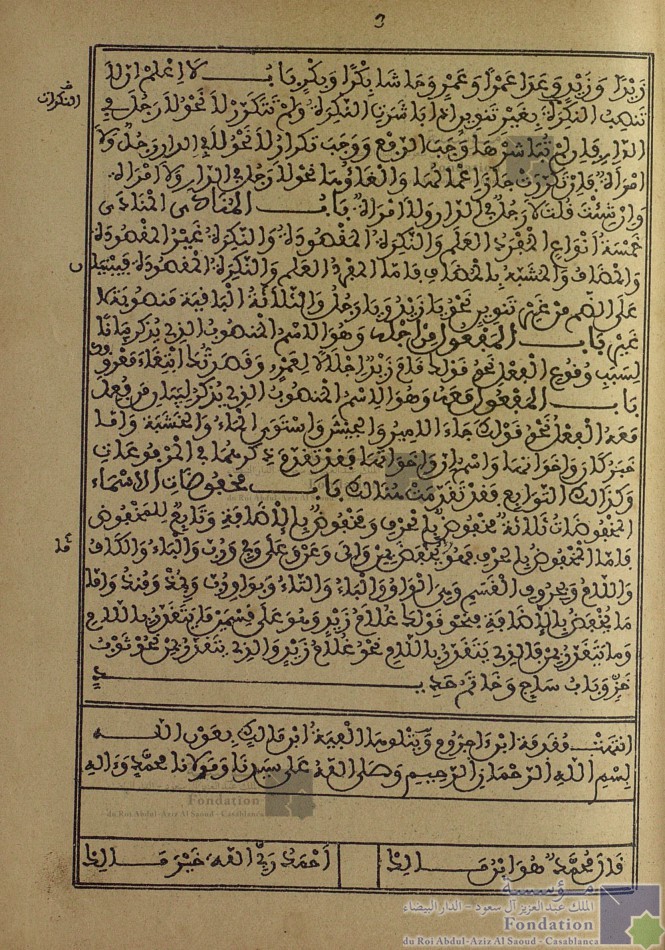 3
زَيْدًا وَزَيْدٍ وَعَدَا عَمْرًا وَعَمْرٍو وَحَاشَا بَكْرًا وَبَكْرٍ بَابُ لَا اِعْلَمْ أَنَّ لَا
النكرات
تَنْصِبُ النَّكِرَةَ بِغَيْرِ تَنْوِينٍ إِذَا بَاشَرَتِ النَّكِرَةَ وَلَمْ تَتَكَرَّرْ لَا نَحْوُ لَا رَجُلَ فِي
الدَّارِ فَإِن لَّمْ تُبَاشِرْهَا وَجَبَ الرَّفْعُ وَوَجَبَ تَكْرَارُ لَا نَحْوُ لَا فِي الدَّارِ رَجُلٌ وَلَا
امْرَأَةٌ فَإِنْ تَكَرَّرَتْ جَازَ إِعْمَالُهَا وَإِلْغَاؤُهَا نَحْوُ لَا رَجُلَ فِي الدَّارِ وَلَا امْرَأَةَ
وَإِنْ شِئْتَ قُلْتَ لَا رَجُلٌ فِي الدَّارِ وَلَا امْرَأَةٌ بَابُ الْمُنَادَى الْمُنَادَى
خَمْسَةُ أَنْوَاعٍ الْمُفْرَدُ الْعَلَمُ وَالنَّكِرَةُ الْمَقْصُودَةُ وَالنَّكِرَةُ غَيْرُ الْمَقْصُودَةِ
وَالْمُضَافُ وَالْمُشَبَّهُ بِالْمُضَافِ فَأَمَّا الْمُفْرَدُ الْعَلَمُ وَالنَّكِرَةُ الْمَقْصُودَةُ فَيُبْنَيَانِ
عَلَى الضَّمِّ مِنْ غَيْرِ تَنْوِينٍ نَحْوُ يَا زَيْدُ وَيَا رَجُلُ وَالثَّلَاثَةُ الْبَاقِيَةُ مَنْصُوبَةٌ لَا
غَيْرُ بَابُ الْمَفْعُولِ مِنْ أَجْلِهِ وَهُوَ الِاسْمُ الْمَنْصُوبُ الَّذِي يُذْكَرُ بَيَانًا
لِسَبَبِ وُقُوعِ الْفِعْلِ نَحْوُ قَوْلِكَ قَامَ زَيْدٌ إِجْلَالًا لِعَمْرٍو وَقَصَدْتُكَ ابْتِغَاءَ مَعْرُوفِكَ
بَابُ الْمَفْعُولِ مَعَهُ وَهُوَ الِاسْمُ الْمَنْصُوبُ الَّذِي يُذْكَرُ لِبَيَانِ مَنْ فُعِلَ
مَعَهُ الْفِعْلُ نَحْوُ قَوْلِكَ جَاءَ الْأَمِيرُ وَالْجَيْشَ وَاسْتَوَى الْمَاءُ وَالْخَشَبَةَ وَأَمَّا
خَبَرُ كَانَ وَأَخَوَاتِهَا وَاسْمُ إِنَّ وَأَخَوَاتِهَا فَقَدْ تَقَدَّمَ ذِكْرُهُمَا فِي الْمَرْفُوعَاتِ
وَكَذَالِكَ التَّوَابِعُ فَقَدْ تَقَدَّمَتْ هُنَالِكَ بَابُ مَخْفُوضَاتِ الْأَسْمَاءِ
الْمَخْفُوضَاتُ ثَلَاثَةٌ مَخْفُوضٌ بِالْحَرْفِ وَمَخْفُوضٌ بِالْإِضَافَةِ وَتَابِعٌ لِلْمَخْفُوضِ
فَأَمَّا الْمَخْفُوضُ بِالْحَرْفِ فَهُوَ مَا يُخْفَضُ بِمِنْ وَإِلَى وَعَنْ وَعَلَى وَفِي وَرُبَّ وَالْبَاءِ وَالْكَافِ
مَا
وَاللَّامِ وَبِحُرُوفِ الْقَسَمِ وَهِيَ الْوَاوُ وَالْبَاءُ وَالتَّاءُ وَبِوَاوِ رُبَّ وَبِمُذْ وَمُنْذُ وَأَمَّا
مَا يُخْفَضُ بِالْإِضَافَةِ فَنَحْوُ قَوْلِكَ غُلَامُ زَيْدٍ وَهُوَ عَلَى قِسْمَيْنِ مَا يُتَقَدَّرُ بِاللَّامِ
وَمَا يُتَقَدَّرُ بِمِنْ فَالَّذِي يُتَقَدَّرُ بِاللَّامِ نَحْوُ غُلَامُ زَيْدٍ وَالَّذِي يُتَقَدَّرُ بِمِنْ نَحْوُ ثَوْبُ
خَزٍّ وَبَابُ سَاجٍ وَخَاتَمُ حَدِيدٍ
انْتَهَتْ مُقَدِّمَةُ ابْنِ ءَاجَرُّومَ وَيَتْلُوهَا أَلْفِيَّةُ ابْنِ مَالِكٍ بِعَوْنِ اللَّهِ
بِسْمِ اللَّهِ الرَّحْمَانِ الرَّحِيمِ وَصَلَّى اللَّهُ عَلَى سَيِّدِنَا وَمَوْلَانَا مُحَمَّدٍ وَءَالِهِ
قَالَ مُحَمَّدٌ هُوَ ابْنُ مَالِكِ أَحْمَدُ رَبِّي اللَّهَ خَيْرَ مَالِكِ
مؤسسة
الملك عبد العزيز آل سعود - الدار البيضاء
Fondation
du Roi Abdul-Aziz Al Saoud - Casablanca